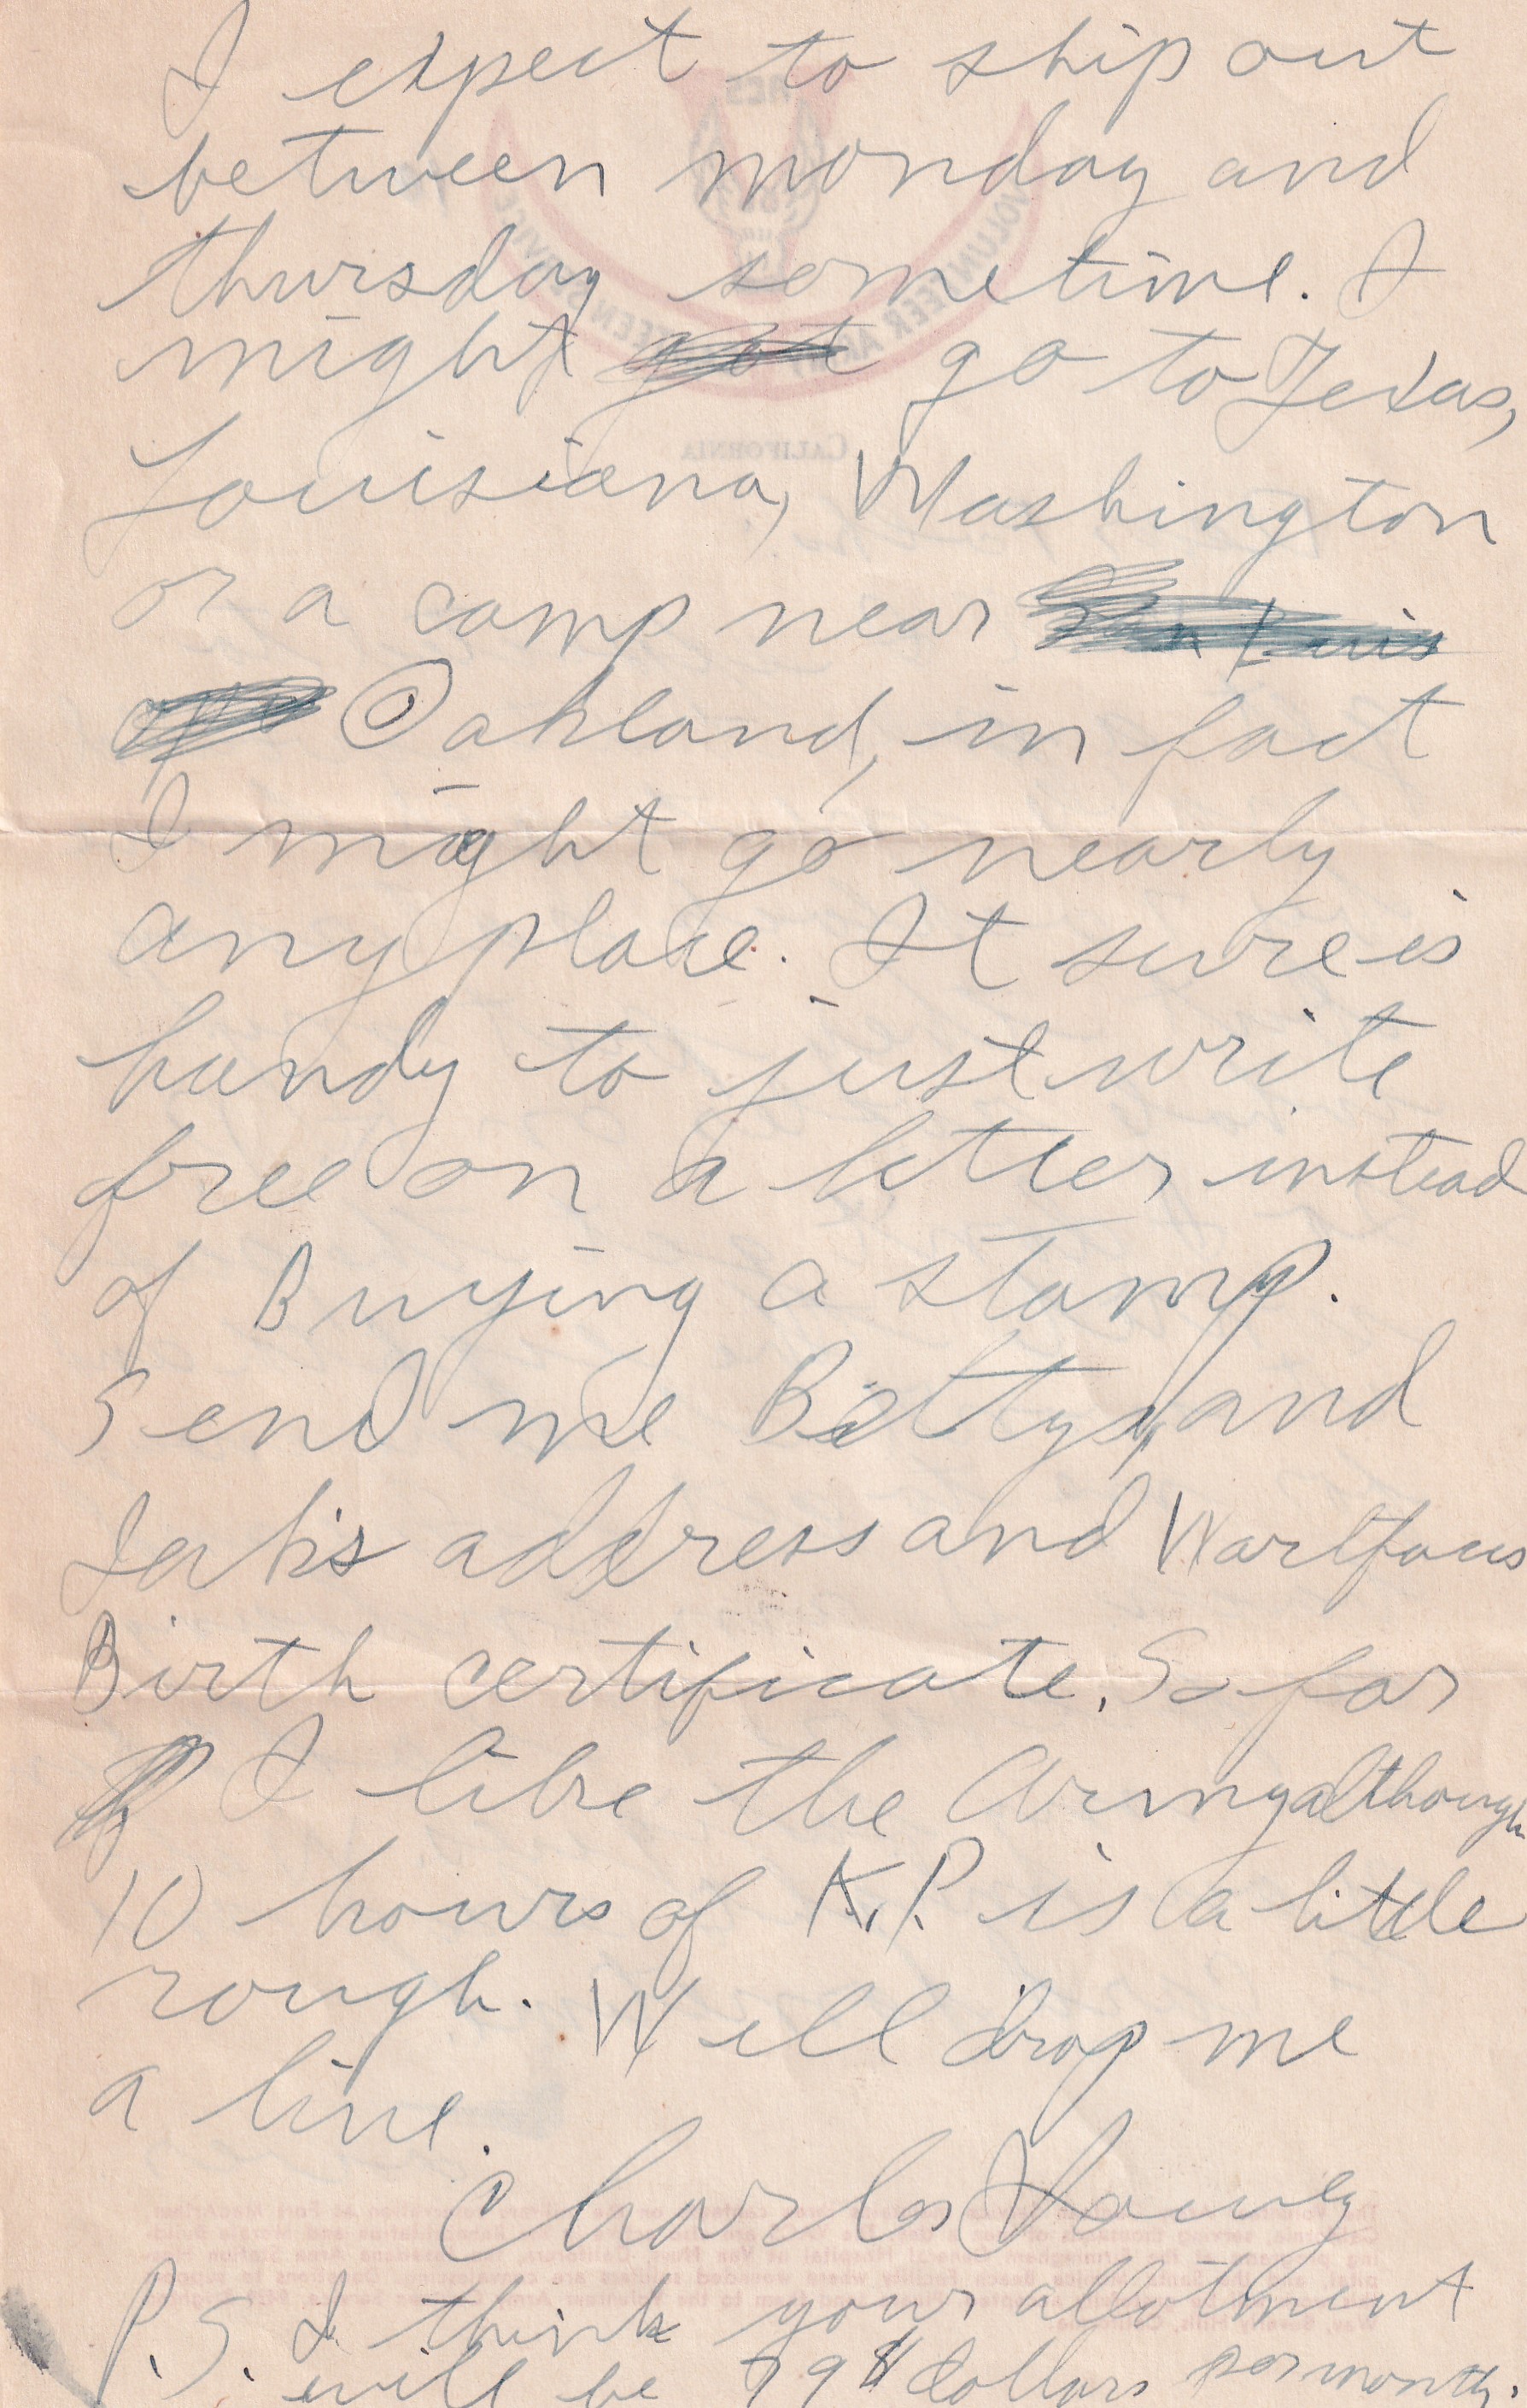 I expect to ship out
between monday and
thursday sometime. I
might got go to Texas,
Louisiana, Washington
or a camp near
Oakland, in fact
I might go nearly
any place. It sure is
handy to just write
free on a letter instead
of Buying a stamp.
Send me Bettys, and
address and
Birth certificate. So far
I like the Army although
10 hours of K.P. is a little
rough. Well drop me
a line.
Charles Young
P.S. I think your allotment
will be dollars per month.
CALIFORNIA